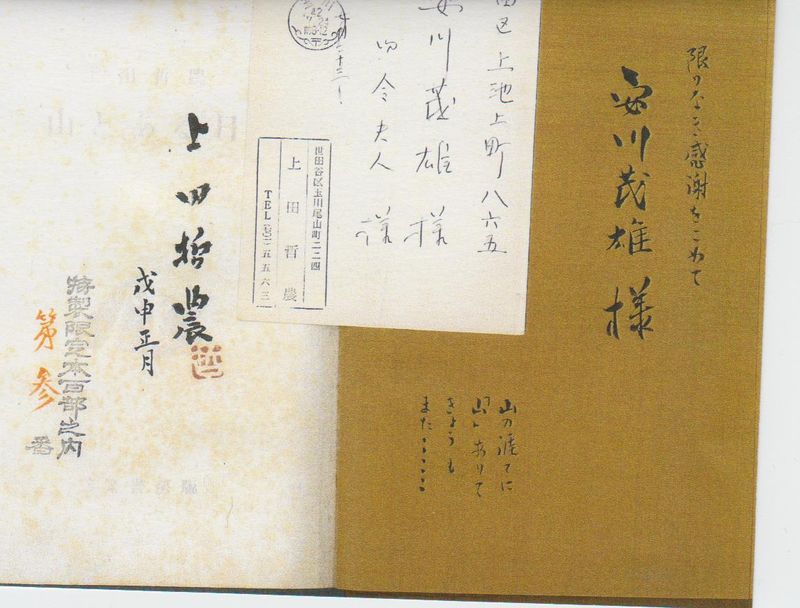 限りなき感謝をこめて
安川茂雄様
山の涯てに
山ありて
きょうも
また・・・・
田区上池上町八六五
安川茂雄様
令夫人様
世田谷区玉川尾山町二二四
上田哲農
上田哲農
戊申正月
特製限定本百部之内
第参番